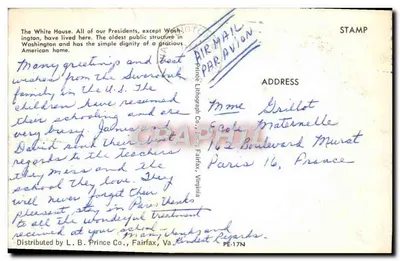 The White House. All of our Presidents, except Wash-
ington, have lived here. The oldest public structure in
Washington and has the simple dignity of a gracious
American home.
Many greetings and best
wishes from the
family in the U.S. The
children have resumed
their schooling and are
very busy. James and
send their best
regards to the teachers
they miss and the
school they love. They
will never forget their
pleasent stay in Paris thanks
to all the wonderful treatment
received at your school.
Many thanks and
kindest regards.
Distributed by L. B. Prince Co., Fairfax, Va.
Prince Lithograph Co., Inc., Fairfax, Virginia
AIR MAIL
PAR AVION
STAMP
ADDRESS
Mme Grillot
Ecole Maternelle
102 Boulevard Murat
Paris 16, France
PE-17N